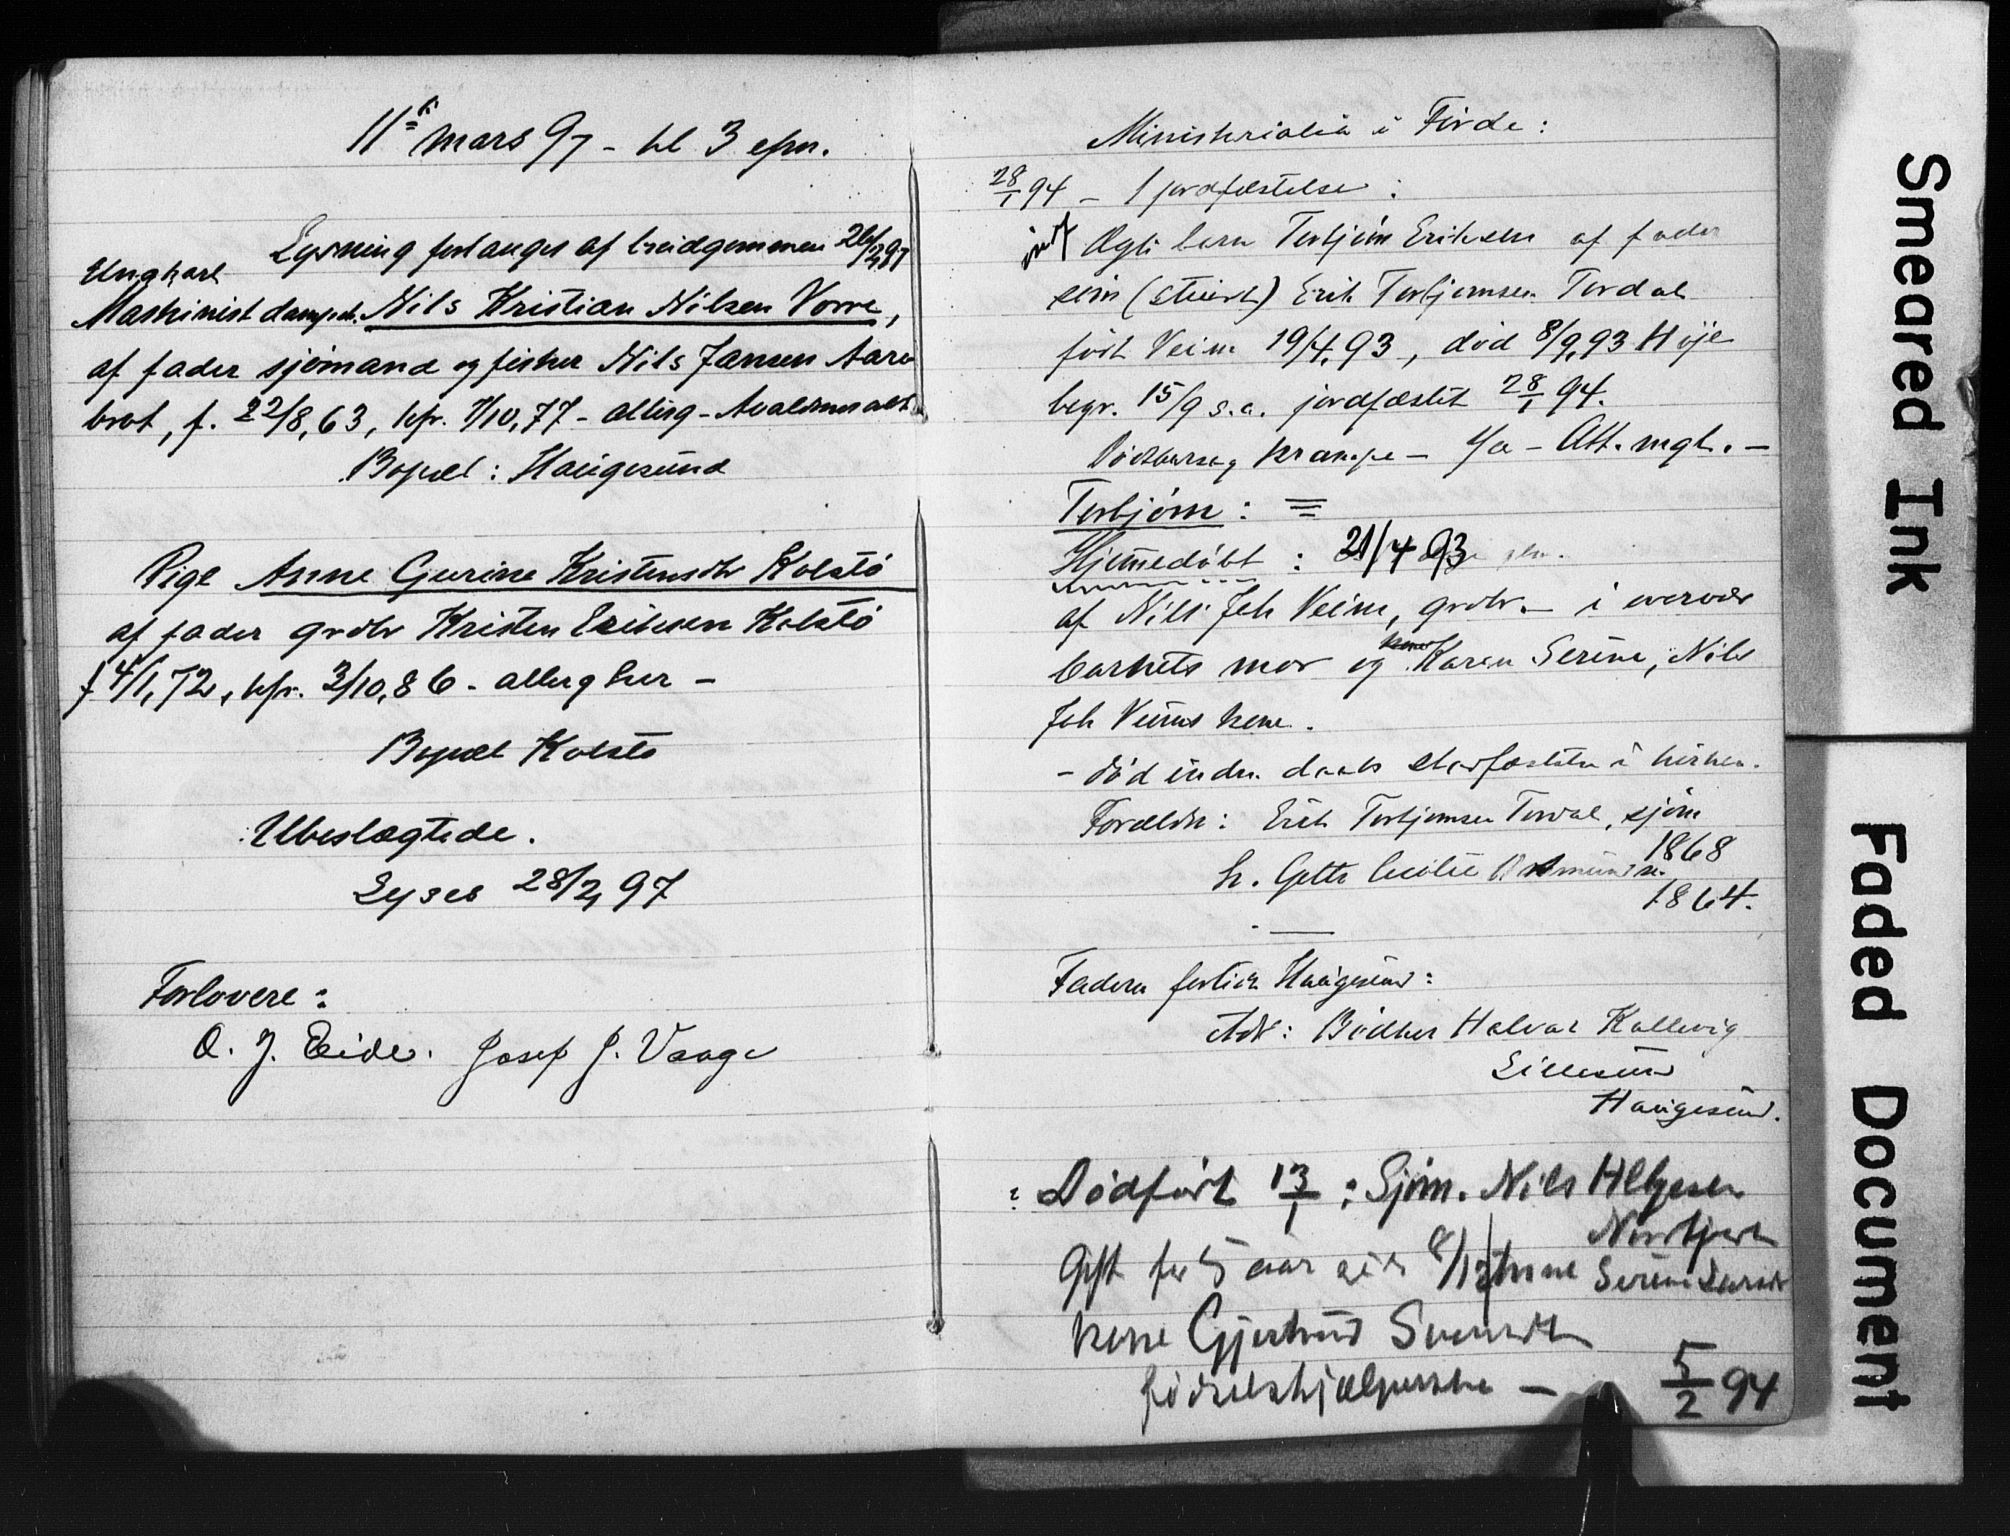 11te mars 97 - kl 3 efm.
Lysning forlanges af brudgommen 26/2,97
Ungkarl
Maskinist dampsk. Nils Kristian Nilsen Vorre,
af fader sjømand og fisker Nils Jansen Aara
brot, f. 22/8,63, kfr. 7/10,77 - allesg - Avaldsnes alt.
Bopæl: Haugesund
Pige Anne Gurine Kristensdtr Kolstø
af fader grdbr Kristen Eriksen Kolstø
f 4/1,72, kfr. 3/10,86 - allesg her -
Bopæl Kolstø
Ubeslægtede.
Lyses 28/2,97
Forlovere:
O. J. Eide. Josef J. Vaage
Ministerialia i Førde:
28/1 94 - 1 jordfæstelse:
Ægte barn Torbjørn Eriksen af fader
sjøm (stuert) Erik Torbjørnsen Tordal
født Veim 19/4,93, død 8/9,93 Høje
begr. 15/9 s.a. jordfæstet 28/1 94.
Dødsaarsag krampe - l/a - Att. mgl. -
Torbjørn: =
Hjemmedøbt: 21/4 93
af Nils Joh Veim, grdbr. - i overvær
barnets mor og kone Karen Serine, Nils
Joh Veims kone.
- død inden daab stadfæstet i kirken.
Forældre: Erik Torbjørnsen Tordal, sjøm
1868
h. Gitte Cecilie
1864.
Faderen fortiden Haugesund:
Adr: Bødker Halvar Kallevig
Lillesund
Haugesund.
: Dødfødt 13/1 : Sjøm. Nils Helgesen
Gift for 5 aar siden 8/12 Anne Serine Larsdtr
kone Gjertrud Svensdtr
fødselshjælperske - 5/2 94
Smeared Ink
Faded Document